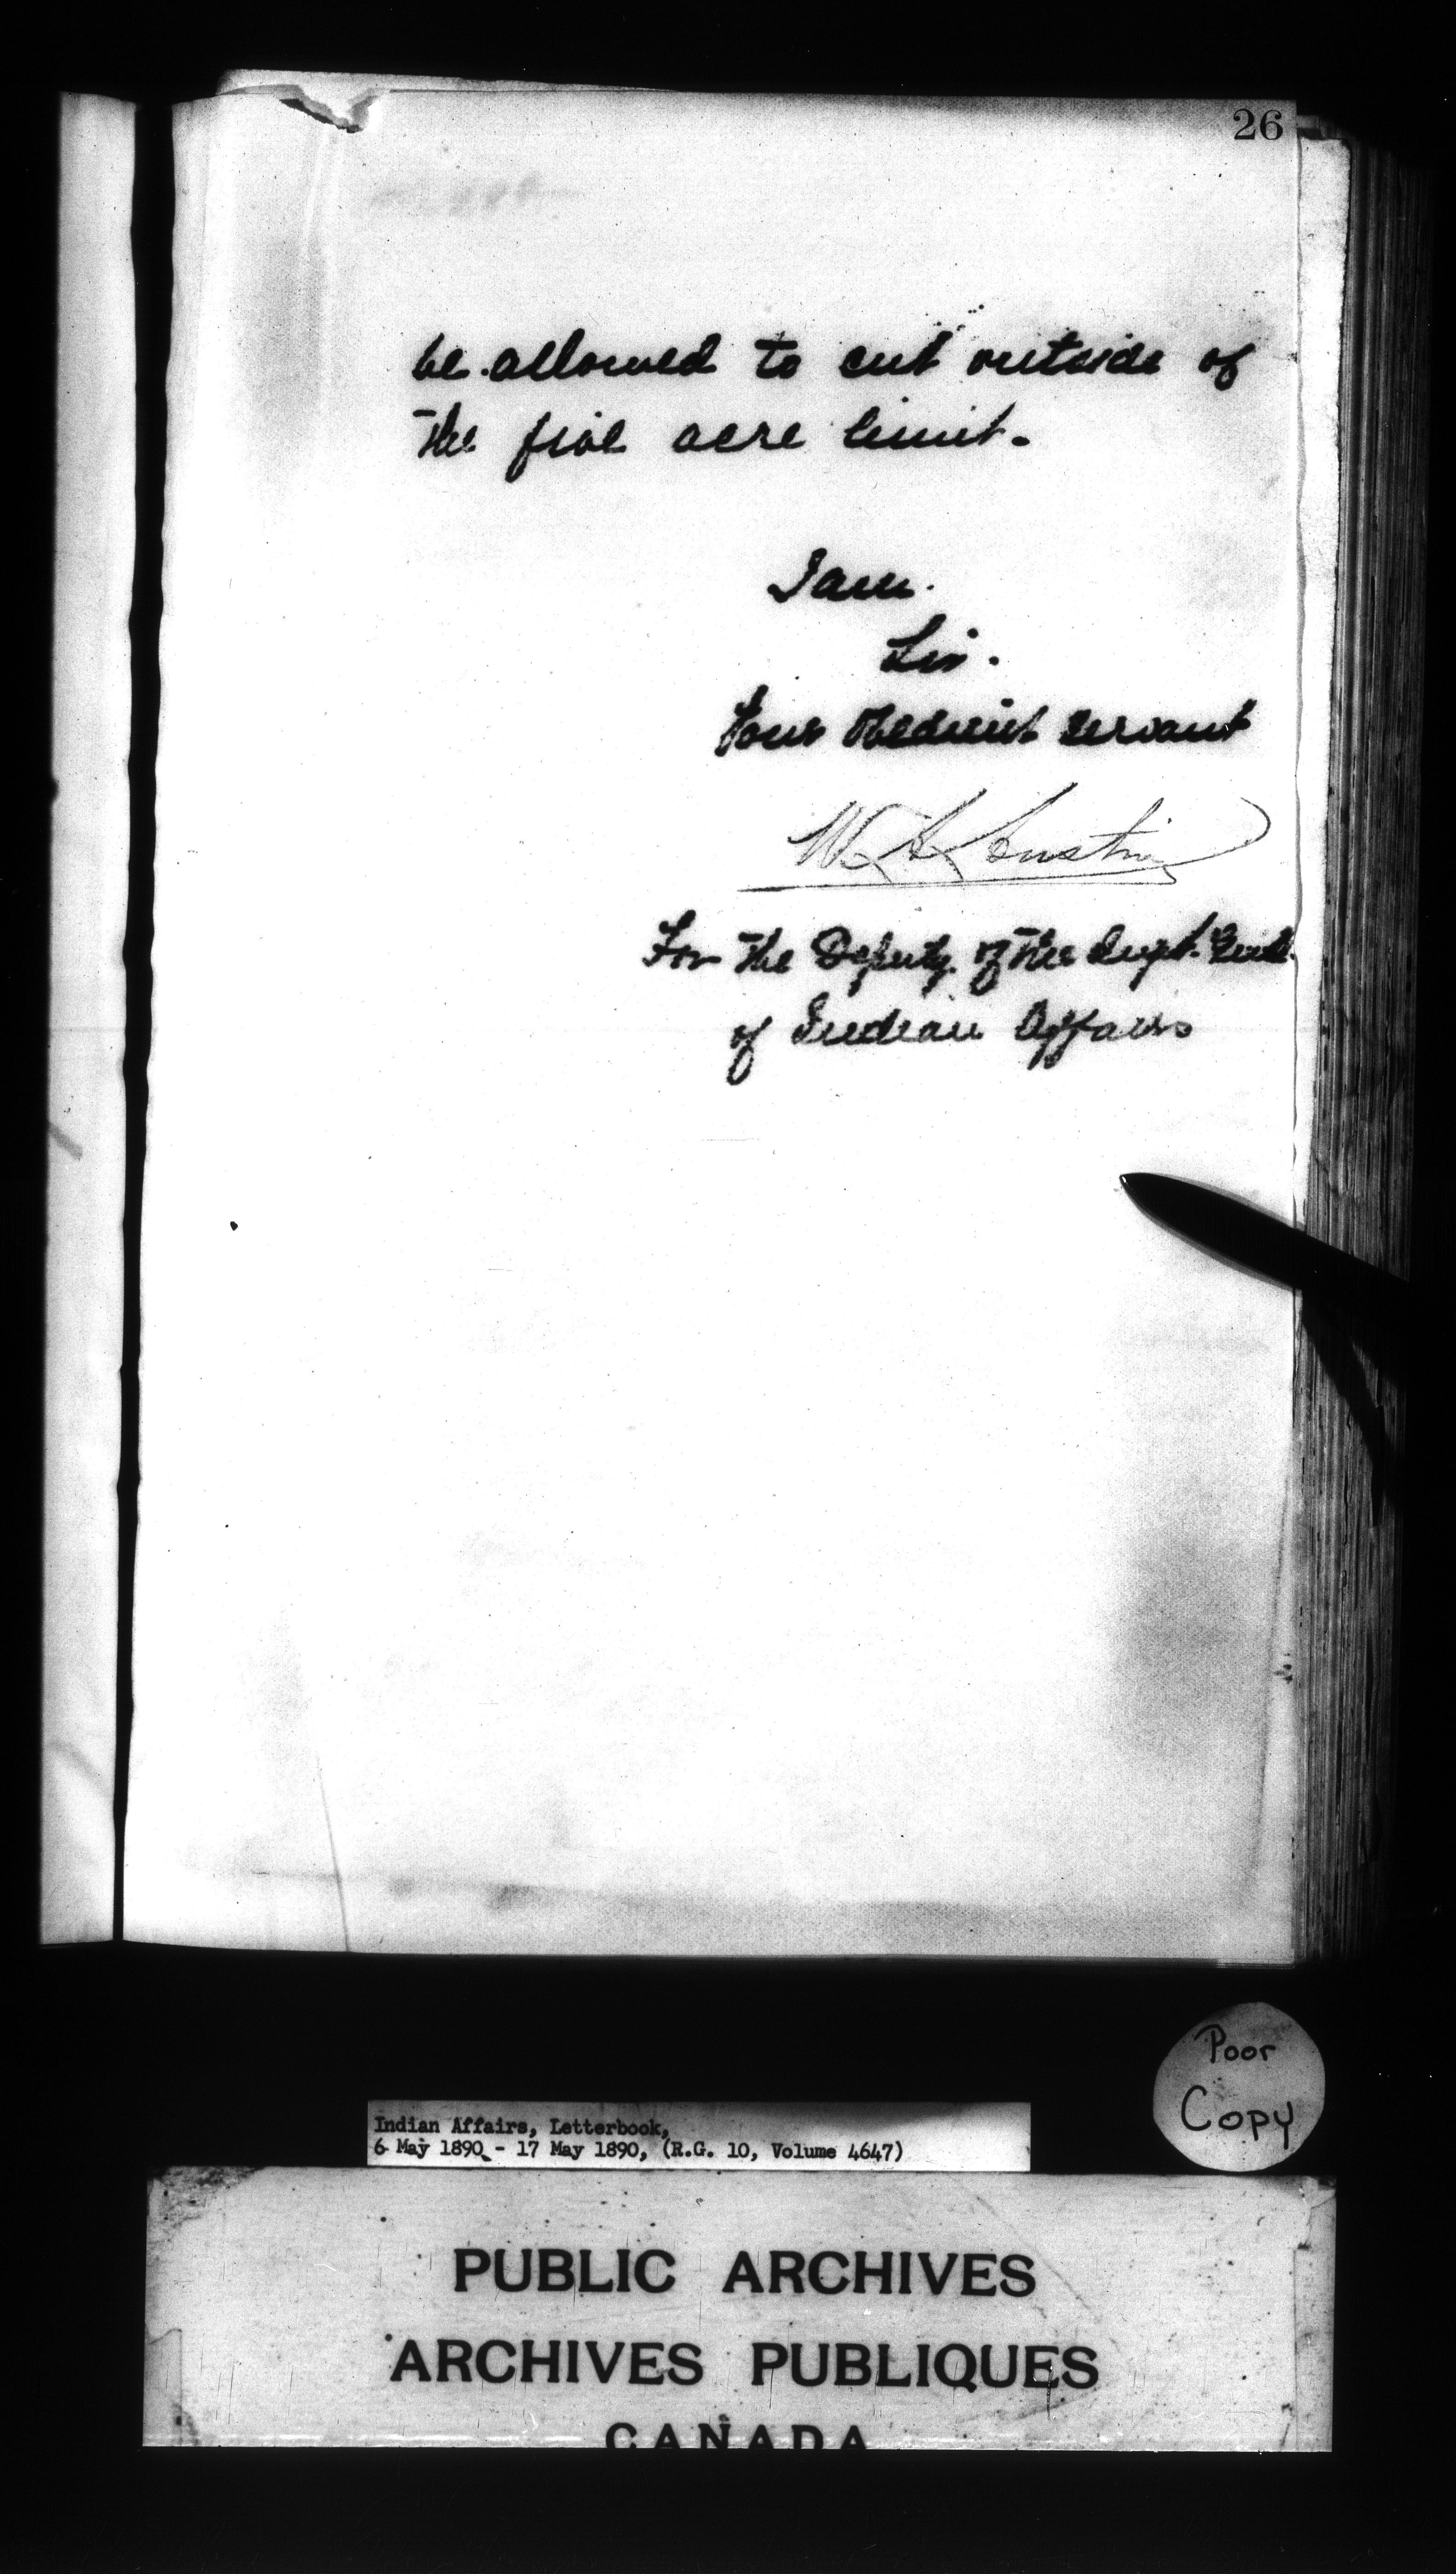 26
be allowed to cut outside of
the five acre limit.
I am.
Sir.
Your obedient servant
W. A. Austin
For the Deputy of the Supt. Genl.
of Indian Affairs
Poor
Copy
Indian Affairs, Letterbook,
6 May 1890 - 17 May 1890, (R.G. 10, Volume 4647)
PUBLIC ARCHIVES
ARCHIVES PUBLIQUES
CANADA